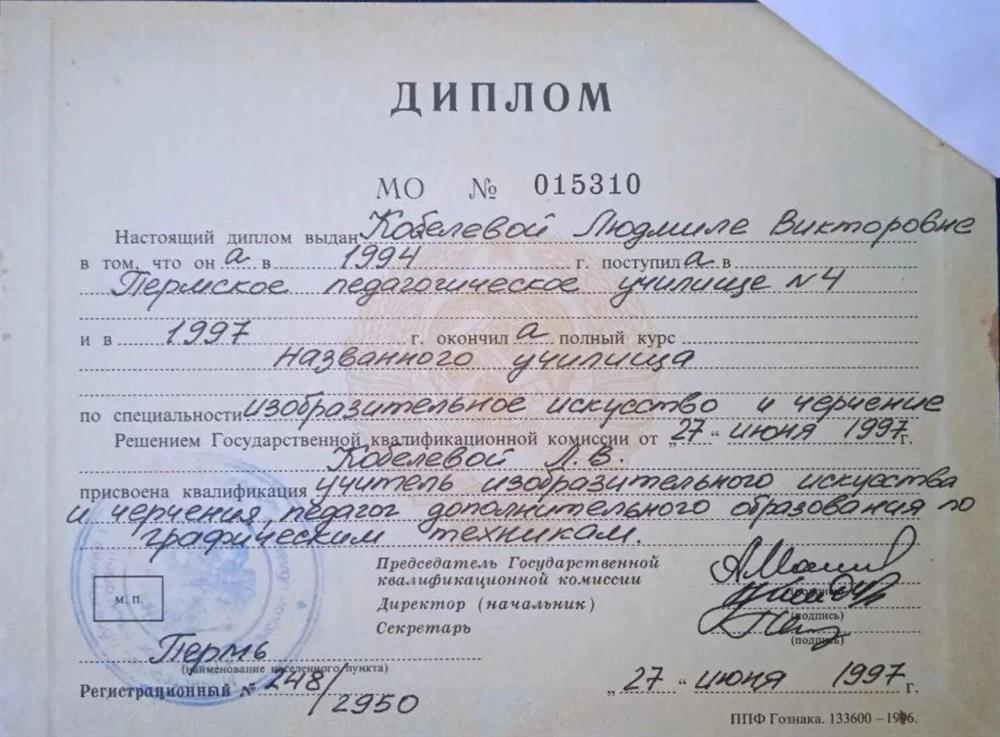 ДИПЛОМ
МО № 015310
Настоящий диплом выдан Кобелевой Людмиле Викторовне
в том, что он а в 1994 г. поступил а в
Пермское педагогическое училище N 4
и в 1997 г. окончил а полный курс
названного училища
по специальности изобразительное искусство и черчение
Решением Государственной квалификационной комиссии от „27“ июня 1997 г.
Кобелевой Л.В.
присвоена квалификация учитель изобразительного искусства
и черчения, педагог дополнительного образования по
графическим техникам.
Председатель Государственной
квалификационной комиссии
(подпись)
Директор (начальник)
(подпись)
Секретарь
(подпись)
М. П.
Пермь
(наименование населенного пункта)
Регистрационный № 248/2950
„27“ июня 1997 г.
ППФ Гознака. 133600 – 1996.